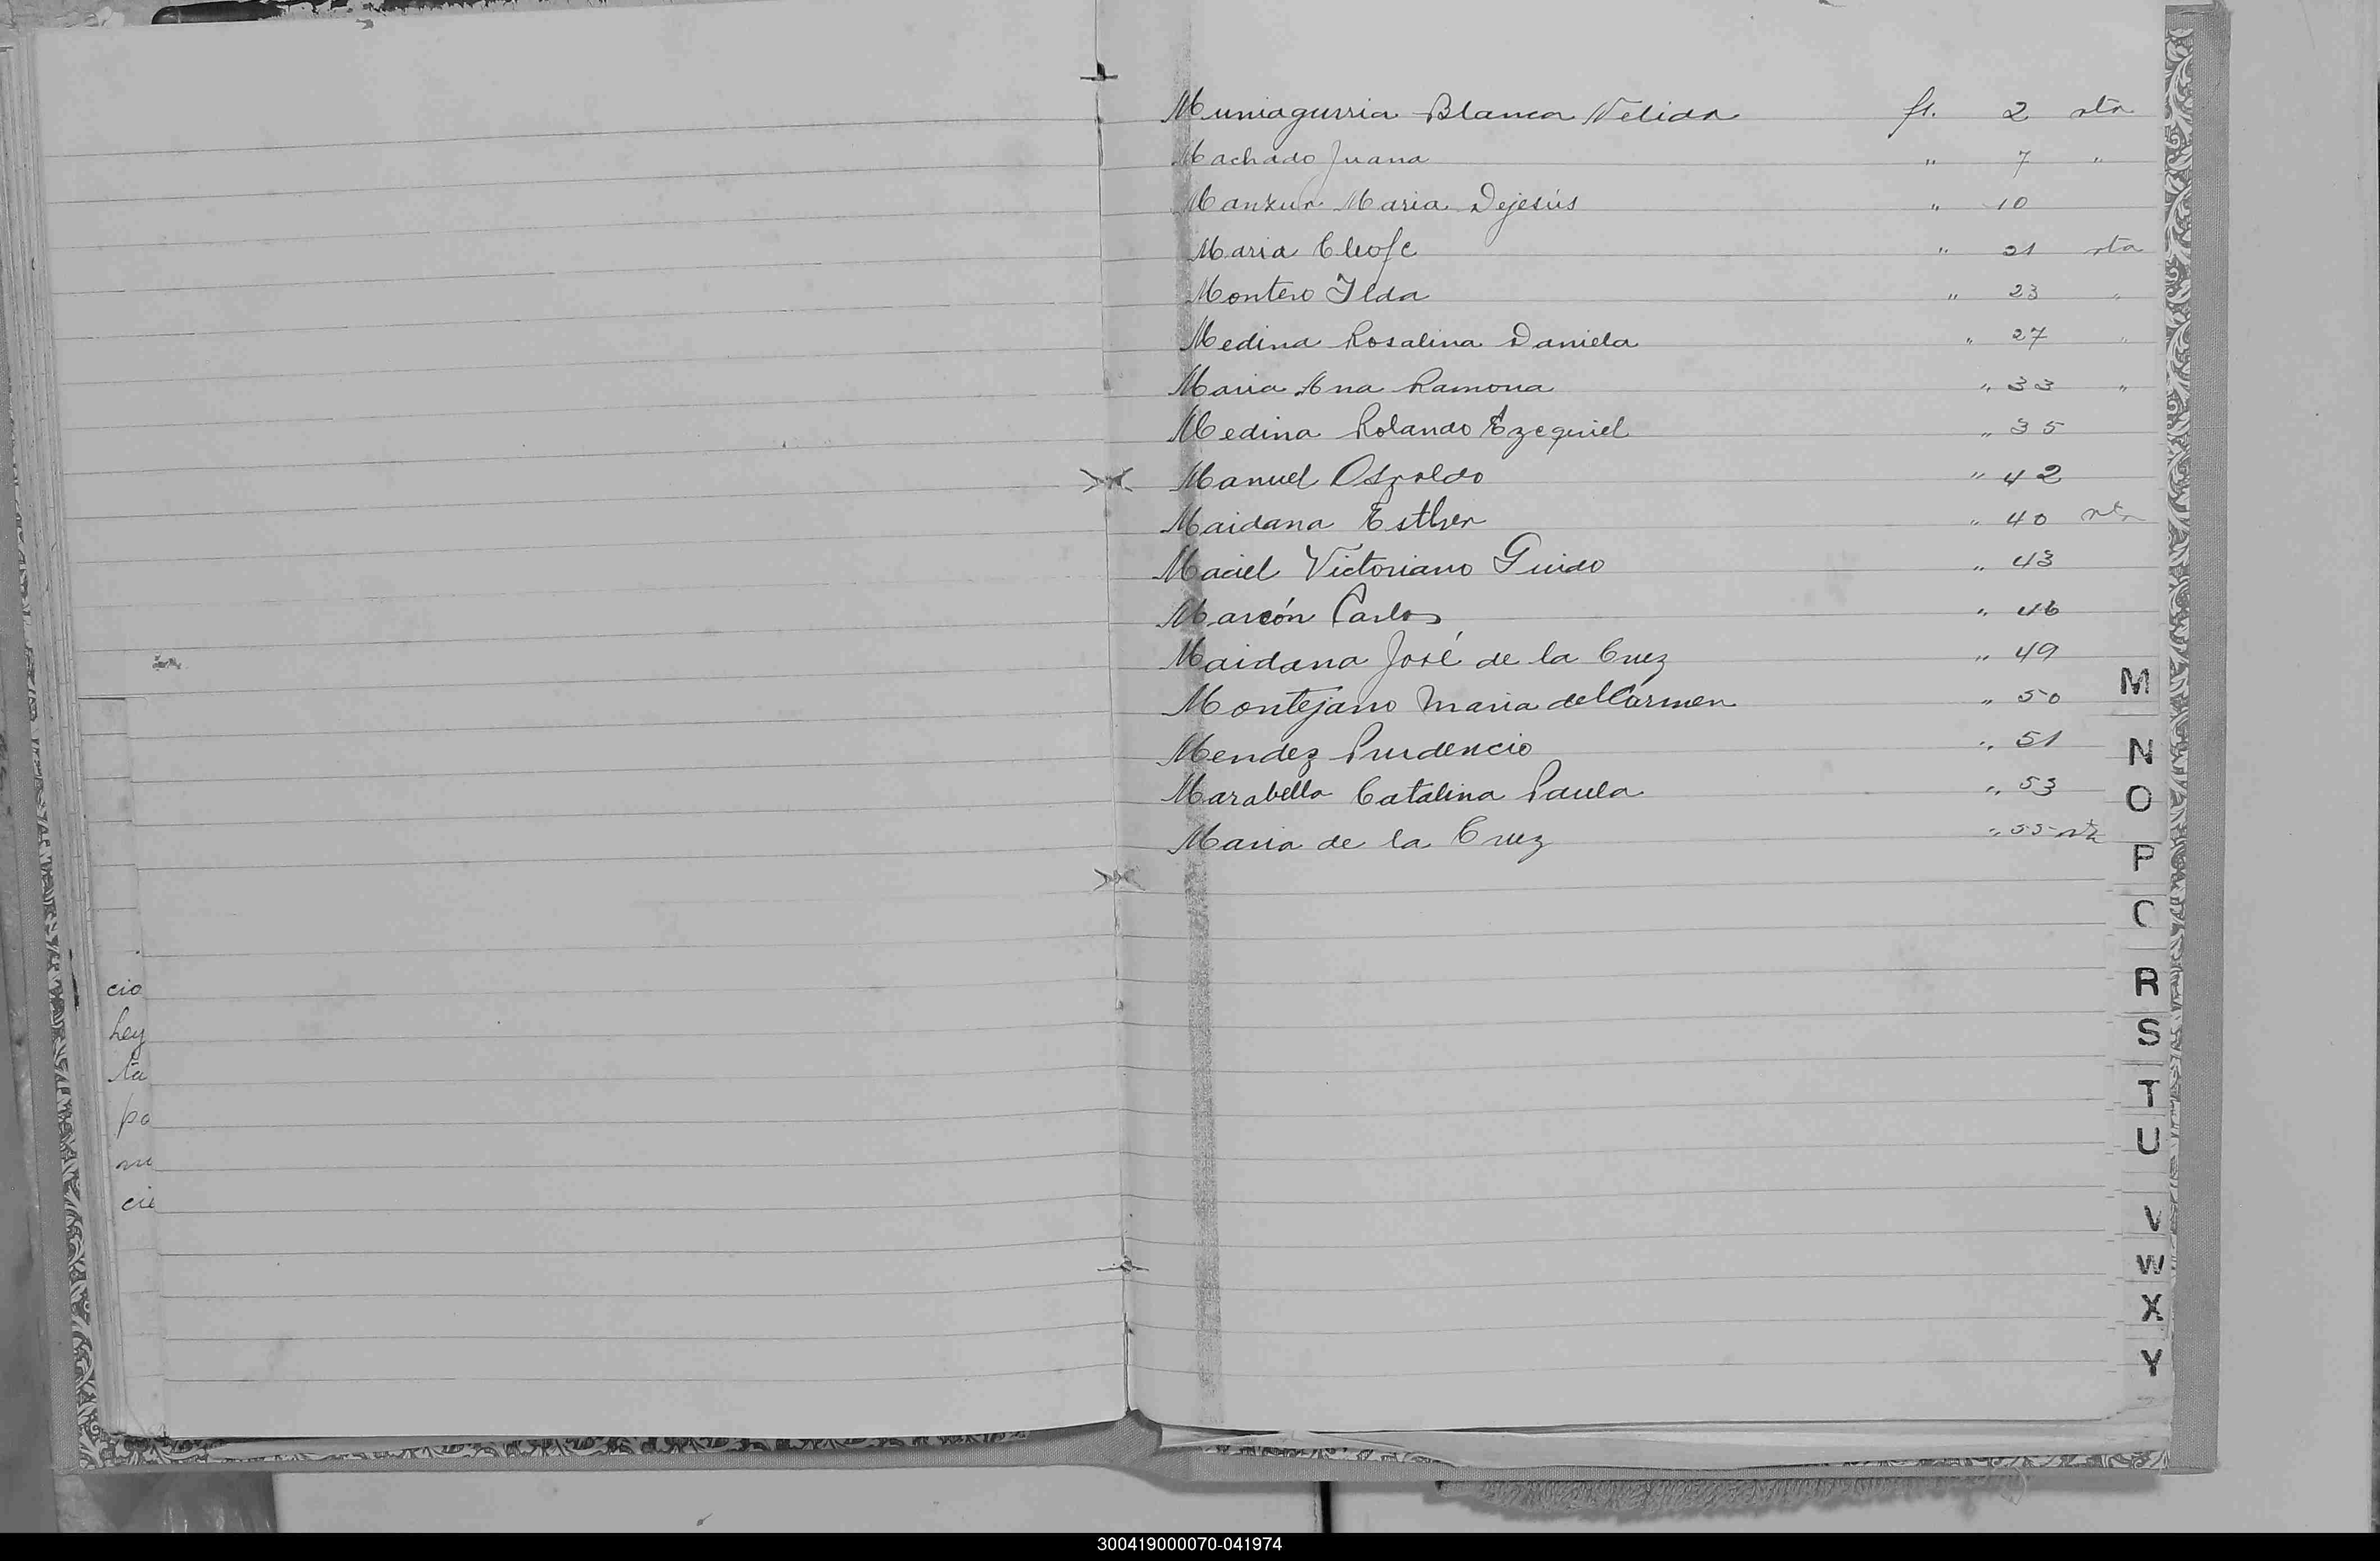 Muniagurria Blanca Nelida fs. 2 vta
Machado Juana " 7 "
Manzur Maria Dejesús " 10
Maria Cleofe " 21 vta
Montero Ilda " 23 "
Medina Rosalina Daniela " 27 "
Maria Ana Ramona " 33 "
Medina Rolando Ezequiel " 35
Manuel Osvaldo " 42
Maidana Esther " 40 vta
Maciel Victoriano Guido " 43
Marcón Carlos " 46
Maidana José de la Cruz " 49
Montejano Maria del Carmen " 50
Mendez Prudencio " 51
Marabella Catalina Paula " 53
Maria de la Cruz " 55 vta
M
N
O
P
R
S
T
U
V
W
X
Y
cio
hey
ta
po
cie
300419000070-041974